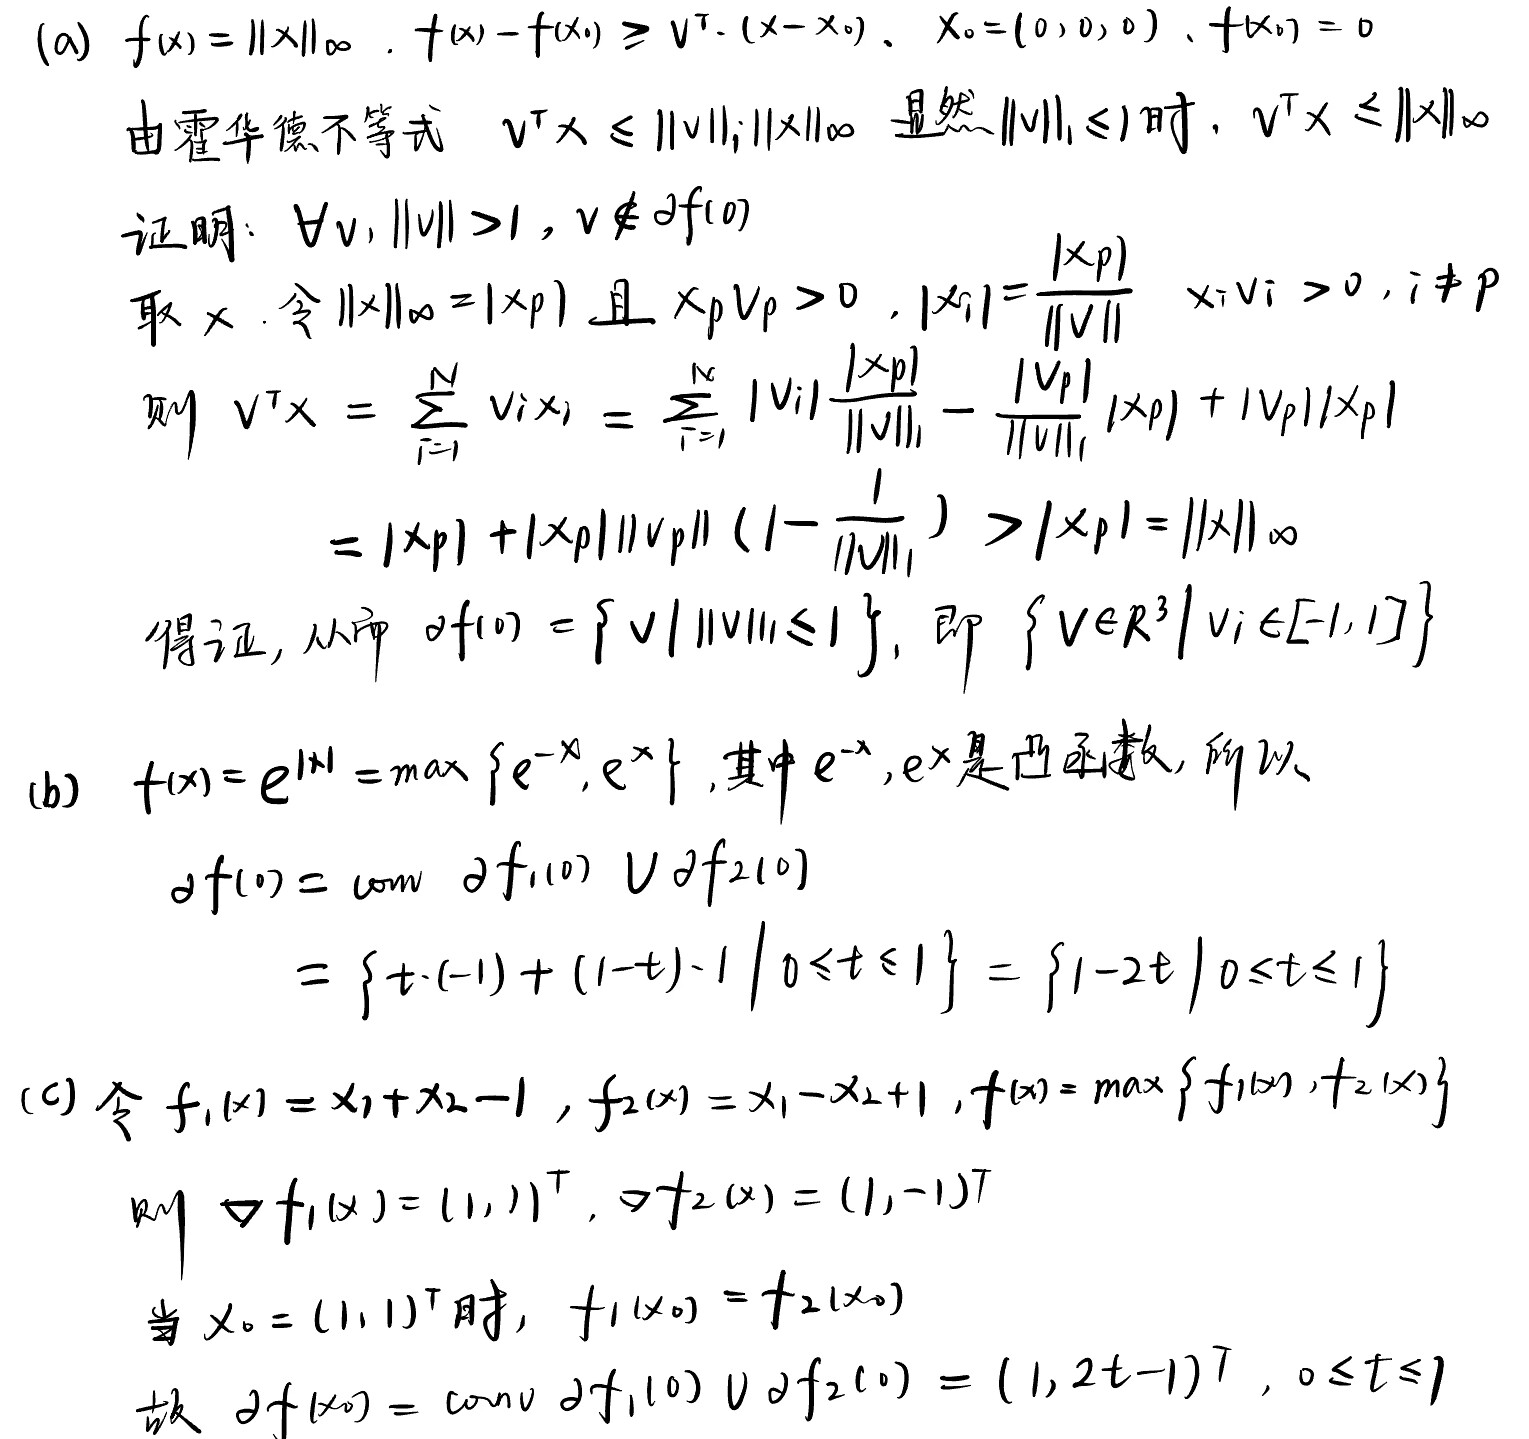 (a) f(x) = ||x||∞ . f(x) - f(x₀) ≥ vᵀ·(x - x₀)、 x₀ = (0, 0, 0)、f(x₀) = 0
由霍华德不等式 vᵀx ≤ ||v||₁||x||∞ 显然||v||₁ ≤ 1时, vᵀx ≤ ||x||∞
证明: ∀v, ||v|| > 1, v ∉ ∂f(0)
取 x . 令 ||x||∞ = |xp| 且 xpvp > 0 , |xi| = |xp| / ||v|| xivi > 0, i ≠ p
则 vᵀx = ∑_{i=1}^{N} vixi = ∑_{i=1}^{N} |vi| |xp| / ||v||₁ - |vp| / ||v||₁ |xp| + |vp||xp|
= |xp| + |xp| ||vp|| (1 - 1 / ||v||₁) > |xp| = ||x||∞
得证, 从而 ∂f(0) = {v | ||v||₁ ≤ 1}, 即 {v ∈ R³ | vi ∈ [-1, 1]}
(b) f(x) = e^{|x|} = max {e^{-x}, e^{x}}, 其中 e^{-x}, e^{x} 是凸函数, 所以
∂f(0) = conv ∂f₁(0) ∪ ∂f₂(0)
= {t·(-1) + (1-t)·1 | 0 ≤ t ≤ 1} = {1-2t | 0 ≤ t ≤ 1}
(c) 令 f₁(x) = x₁ + x₂ - 1 , f₂(x) = x₁ - x₂ + 1 , f(x) = max {f₁(x), f₂(x)}
则 ∇f₁(x) = (1, 1)ᵀ, ∇f₂(x) = (1, -1)ᵀ
当 x₀ = (1, 1)ᵀ 时, f₁(x₀) = f₂(x₀)
故 ∂f(x₀) = conv ∂f₁(0) ∪ ∂f₂(0) = (1, 2t-1)ᵀ, 0 ≤ t ≤ 1